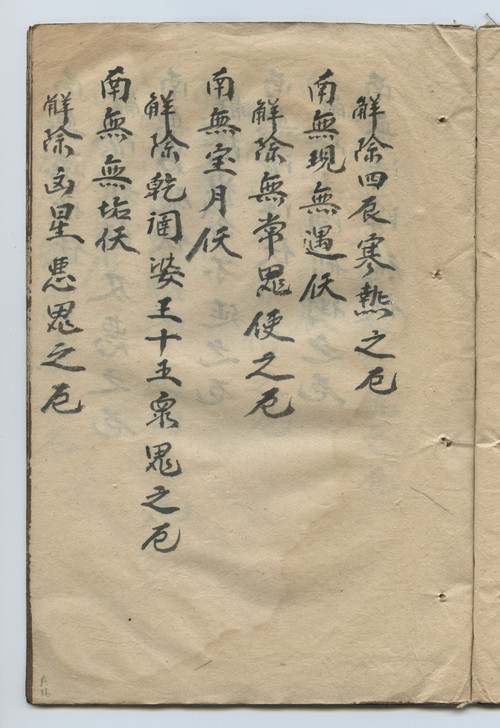 解除四辰寒热之厄
南無現無遇仸
解除無常鬼使之厄
南無宝月仸
解除乾闼婆王十五衆鬼之厄
南無無垢仸
解除凶星悪鬼之厄